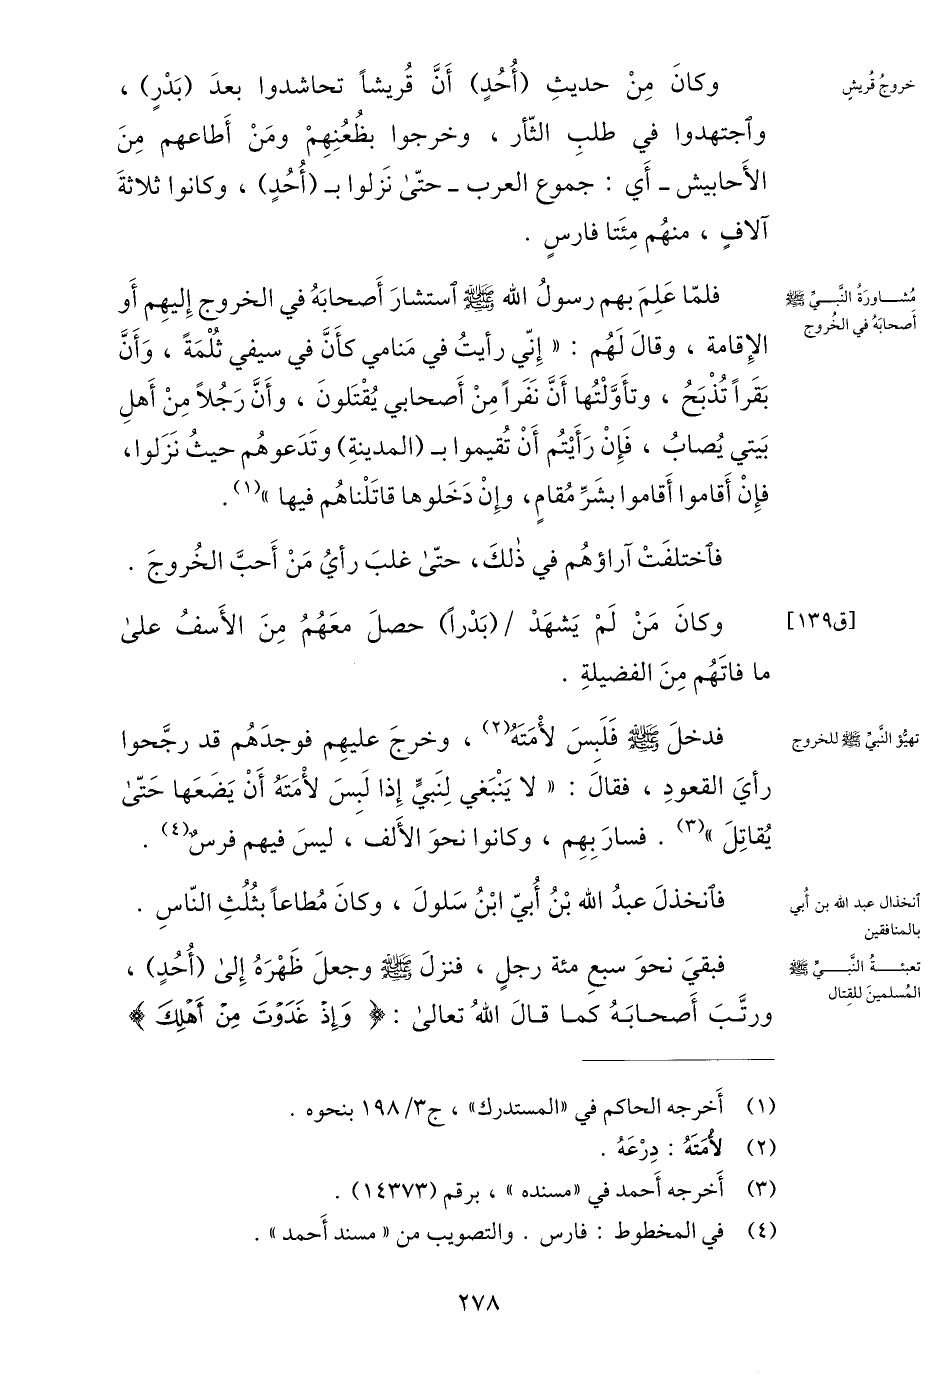 خروجُ قُريشٍ
وكانَ مِنْ حديثِ (أُحُدٍ) أَنَّ قُريشاً تحاشدوا بعدَ (بَدْرٍ) ،
وٱجتهدوا في طلبِ الثّأر ، وخرجوا بظُعُنِهِمْ ومَنْ أَطاعهم مِنَ
الأَحابيش ـ أَي : جموع العرب ـ حتّىٰ نَزلوا بـ (أُحُدٍ) ، وكانوا ثلاثةَ
آلافٍ ، منهُم مِئَتا فارسٍ .
مُشــاورَةُ النَّبــيِّ ﷺ
أَصحابَهُ في الخُروج
فلمّا عَلِمَ بهم رسولُ الله ﷺ ٱستشارَ أَصحابَهُ في الخروج إِليهِم أَو
الإِقامة ، وقالَ لَهُم : « إِنّي رأيتُ في مَنامي كأَنَّ في سيفي ثُلْمَةً ، وَأَنَّ
بَقَراً تُذْبَحُ ، وتأَوَّلْتُها أَنَّ نَفَراً مِنْ أَصحابي يُقْتَلونَ ، وأَنَّ رَجُلاً مِنْ أَهلِ
بَيتي يُصابُ ، فَإِنْ رَأَيْتُم أَنْ تُقيموا بـ (المدينةِ) وتَدَعوهُم حيثُ نَزَلوا،
فإِنْ أَقاموا أَقاموا بشَرِّ مُقامٍ، وإِنْ دَخَلوها قاتَلْناهُم فيها »(١).
فٱختلفَتْ آراؤهُم في ذٰلكَ، حتّىٰ غلبَ رأيُ مَنْ أَحبَّ الخُروجَ .
[ق١٣٩]
وكانَ مَنْ لَمْ يَشهَدْ /(بَدْراً) حصلَ معَهُمُ مِنَ الأَسفُ علىٰ
ما فاتَهُم مِنَ الفضيلةِ .
تهيُّؤ النَّبيِّ ﷺ للخروج
فدخلَ ﷺ فَلَبِسَ لأْمَتَهُ(٢) ، وخرجَ عليهِم فوجدَهُم قد رجَّحوا
رأيَ القعودِ ، فقالَ : « لا يَنْبَغي لِنَبيٍّ إِذا لَبِسَ لأْمَتَهُ أَنْ يَضَعَها حَتّىٰ
يُقاتِلَ »(٣) . فسارَ بِهِم ، وكانوا نحوَ الأَلف ، ليسَ فيهم فرسٌ(٤) .
ٱنخذال عبد الله بن أُبي
بالمنافقين
فٱنخذلَ عبدُ الله بْنُ أُبيّ ابْنُ سَلولَ ، وكانَ مُطاعاً بثُلُثِ النّاسِ .
تعبئــةُ النَّبــيِّ ﷺ
المُسلمينَ للقِتال
فبقيَ نحوَ سبعِ مئة رجلٍ ، فنزلَ ﷺ وجعلَ ظَهْرَهُ إِلىٰ (أُحُدٍ) ،
ورتَّـبَ أَصحـابَـهُ كمـا قـالَ اللهُ تعالىٰ : ﴿ وَإِذْ غَدَوْتَ مِنْ أَهْلِكَ ﴾
(١) أَخرجه الحاكم في «المستدرك» ، ج٣/ ١٩٨ بنحوه .
(٢) لأْمَتَهُ : دِرْعَهُ .
(٣) أَخرجه أَحمد في «مسنده » ، برقم (١٤٣٧٣) .
(٤) في المخطوط : فارس . والتصويب من « مسند أَحمد » .
٢٧٨